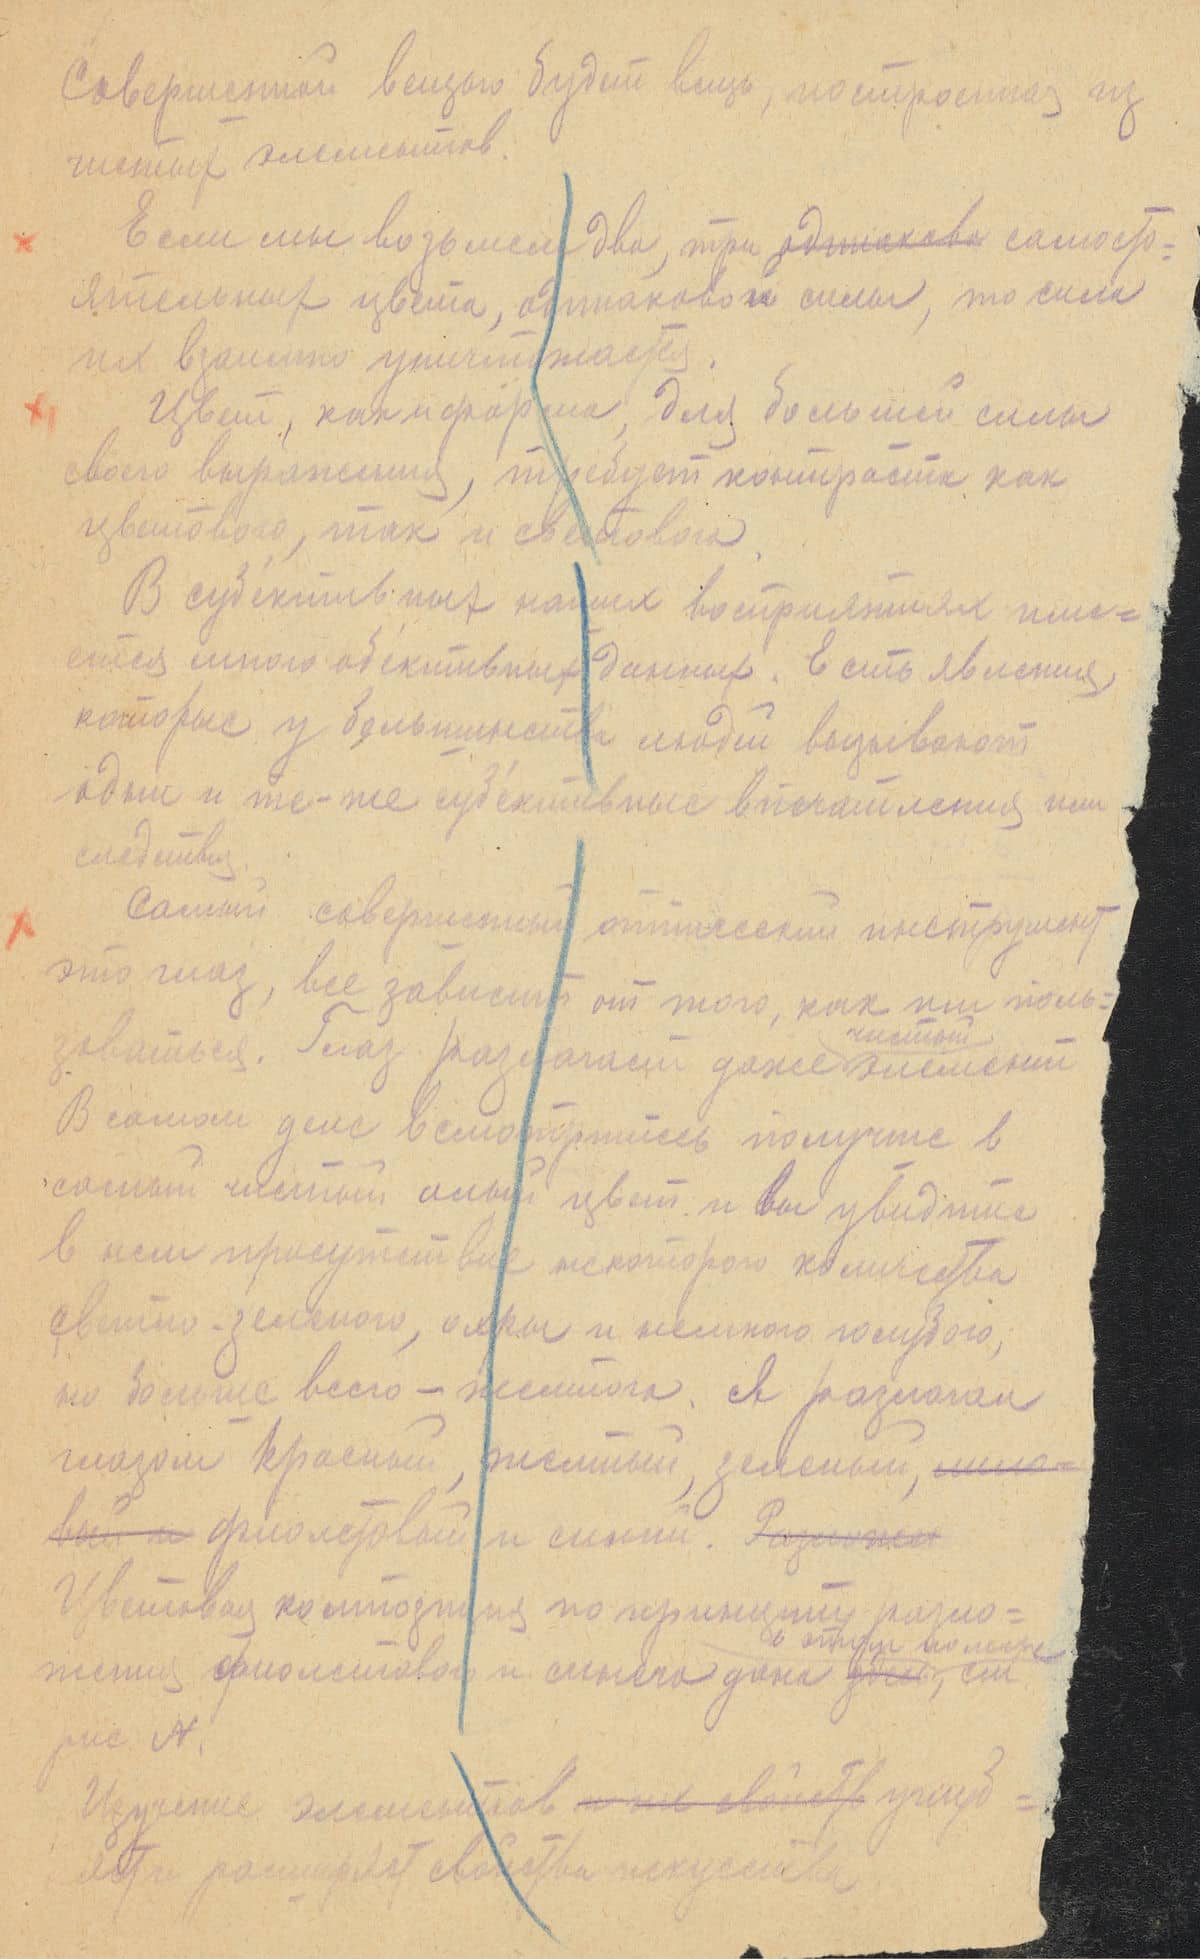 Совершенной вещью будет вещь, построенная из
чистых элементов.
Если мы возьмем два, три одинаково самосто=
ятельных цвета, одинаковой силы, то сила
их взаимно уничтожается.
Цвет, как и форма, для большей силы
своего выражения, требует контраста как
цветового, так и светового.
В субъективных наших восприятиях име=
ется много объективных данных. Есть явления,
которые у большинства людей вызывают
одни и те-же субъективные впечатления или
следствия.
Самый совершенный оптический инструмент
это глаз, все зависит от того, как им поль=
зоваться. Глаз разлагает даже чистый элемент
В самом деле всмотритесь получше в
самый чистый алый цвет и вы увидите
в нем присутствие некоторого количества
светло-зеленого, охры и немного голубого,
но больше всего – желтого. Я разлагал
глазом красный, желтый, зеленый, лило=
вый и фиолетовый и синий. Разложен
Цветовая композиция по принципу разло=
жения фиолетового и синего дана здесь, в этом номере см
рис N.
Изучение элементов и их свойств углуб=
ят и расширят свойства искусства